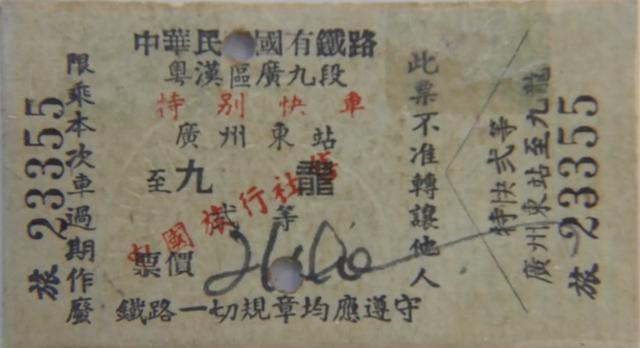 中華民國有鐵路
粵漢區廣九段
特別快車
廣州東站
至九龍
弍等
票價
鐵路一切規章均應遵守
中國旅行社售
限乘本次車過期作廢
旅 23355
此票不准轉讓他人
特快弍等
廣州東站至九龍
旅 23355